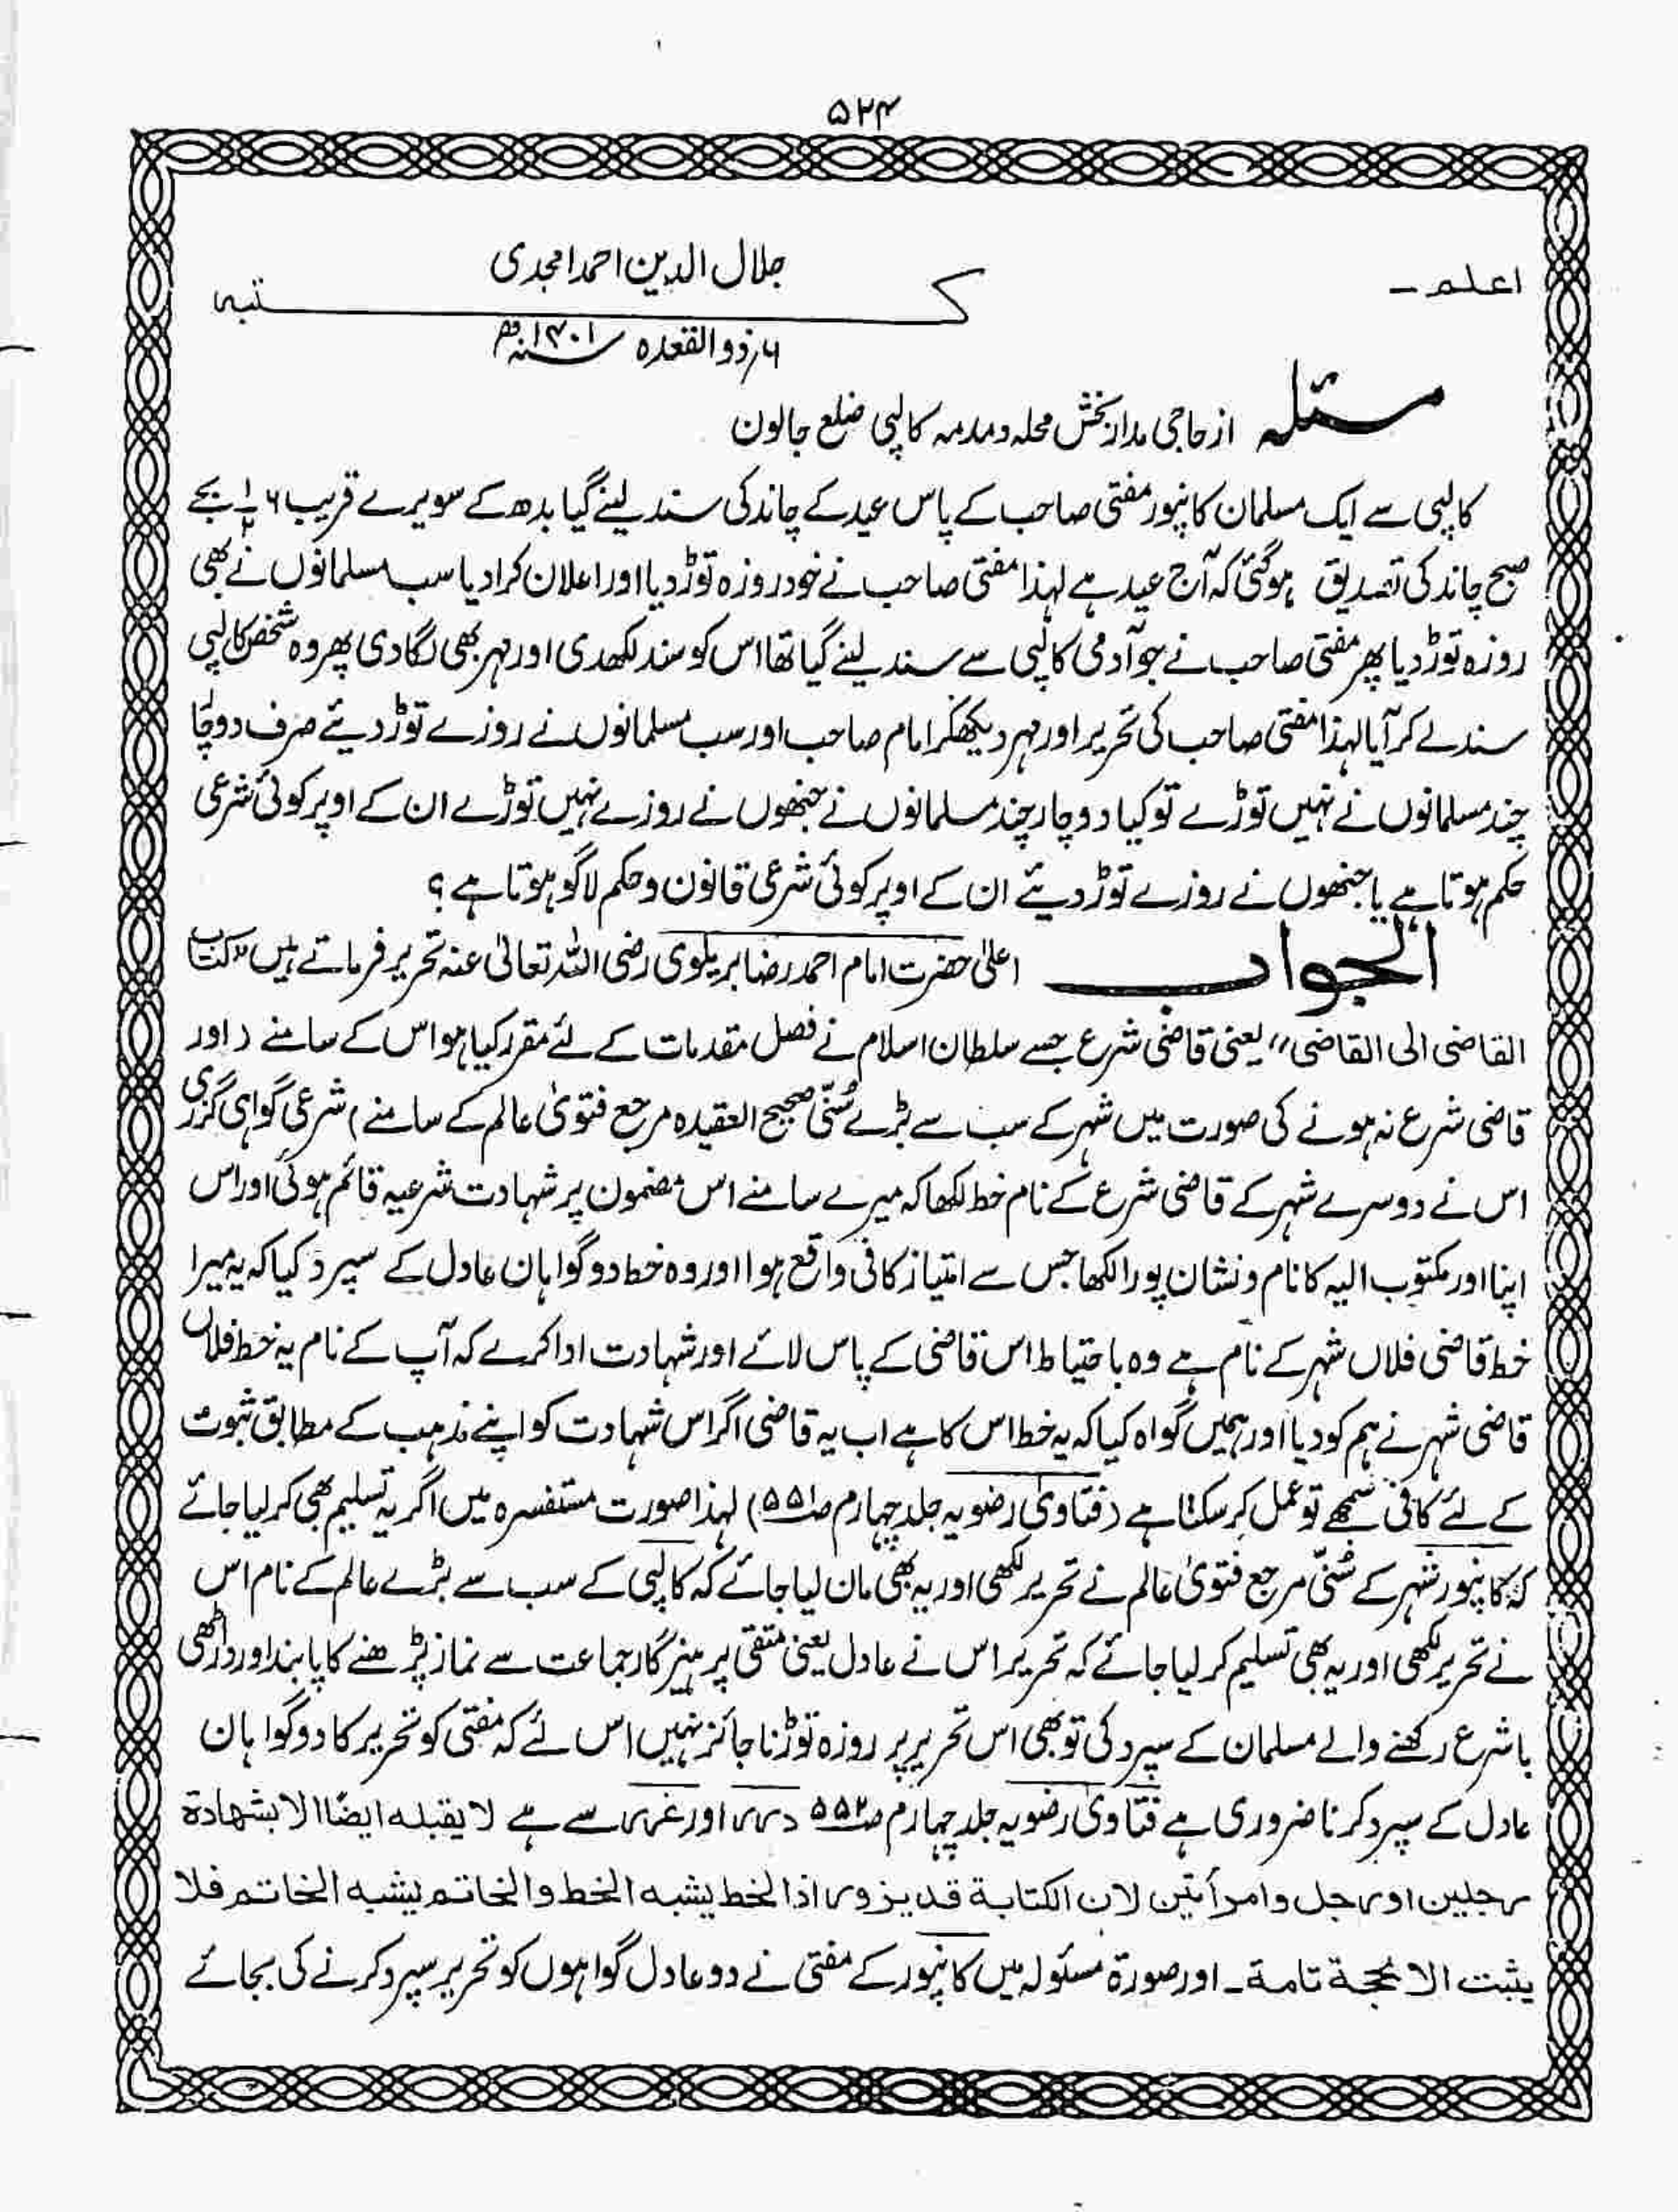 ۵۲۴
اعلم ـ
جلال الدین احمد امجدی
کتبہ
۶؍ ذوالقعدہ سنہ ۱۴۰۱ھ
مسئلہ از حاجی مدار بخش محلہ دمدمہ کالپی ضلع جالون
کالپی سے ایک مسلمان کانپور مفتی صاحب کے پاس عید کے چاند کی سند لینے گیا بدھ کے سویرے قریب ۶ ۱/۲ بجے
صبح چاند کی تصدیق ہوگئی کہ آج عید ہے لہذا مفتی صاحب نے خود روزہ توڑ دیا اور اعلان کرا دیا سب مسلمانوں نے بھی
روزہ توڑ دیا پھر مفتی صاحب نے جو آدمی کالپی سے سند لینے گیا تھا اس کو سند لکھدی اور مہر بھی لگا دی پھر وہ شخص کالپی
سند لے کر آیا لہذا مفتی صاحب کی تحریر اور مہر دیکھکر امام صاحب اور سب مسلمانوں نے روزے توڑ دیئے صرف دو چار
چند مسلمانوں نے نہیں توڑے تو کیا دو چار چند مسلمانوں نے جنھوں نے روزے نہیں توڑے ان کے اوپر کوئی شرعی
حکم ہوتا ہے یا جنھوں نے روزے توڑ دیئے ان کے اوپر کوئی شرعی قانون و حکم لاگو ہوتا ہے ؟
الجواب اعلیٰ حضرت امام احمد رضا بریلوی رضی اللہ تعالیٰ عنہ تحریر فرماتے ہیں ”کتاب
القاضی الی القاضی“ یعنی قاضی شرع جسے سلطان اسلام نے فصل مقدمات کے لئے مقرر کیا ہو اس کے سامنے (اور
قاضی شرع نہ ہونے کی صورت میں شہر کے سب سے بڑے سُنّی صحیح العقیدہ مرجع فتویٰ عالم کے سامنے) شرعی گواہی گزری
اس نے دوسرے شہر کے قاضی شرع کے نام خط لکھا کہ میرے سامنے اس مضمون پر شہادت شرعیہ قائم ہوئی اور اس
اپنا اور مکتوب الیہ کا نام و نشان پورا لکھا جس سے امتیاز کافی واقع ہوا اور وہ خط دو گواہان عادل کے سپرد کیا کہ یہ میرا
خط قاضی فلاں شہر کے نام ہے وہ باحتیاط اس قاضی کے پاس لائے اور شہادت ادا کرے کہ آپ کے نام یہ خط فلاں
قاضی شہر نے ہم کو دیا اور ہمیں گواہ کیا کہ یہ خط اس کا ہے اب یہ قاضی اگر اس شہادت کو اپنے مذہب کے مطابق ثبوت
کے لئے کافی سمجھے تو عمل کر سکتا ہے (فتاویٰ رضویہ جلد چہارم ص۵۵۱) لہذا صورت مستفسرہ میں اگر یہ تسلیم بھی کر لیا جائے
کہ کانپور شہر کے سُنّی مرجع فتویٰ عالم نے تحریر لکھی اور یہ بھی مان لیا جائے کہ کالپی کے سب سے بڑے عالم کے نام اس
نے تحریر لکھی اور یہ بھی تسلیم کر لیا جائے کہ تحریر اس نے عادل یعنی متقی پرہیزگار جماعت سے نماز پڑھنے کا پابند اور داڑھی
باشرع رکھنے والے مسلمان کے سپرد کی تو بھی اس تحریر پر روزہ توڑنا جائز نہیں اس لئے کہ مفتی کو تحریر کا دو گواہان
عادل کے سپرد کرنا ضروری ہے فتاویٰ رضویہ جلد چہارم ص۵۵۲ درر اور غرر سے ہے لا یقبلہ ایضًا الا بشھادة
رجلین او رجل وامرأتین لان الکتابة قد یزور اذ الخط یشبہ الخط والخاتم یشبہ الخاتم فلا
یثبت الا بحجة تامة ـ اور صورة مسئولہ میں کانپور کے مفتی نے دو عادل گواہوں کو تحریر سپرد کرنے کی بجائے